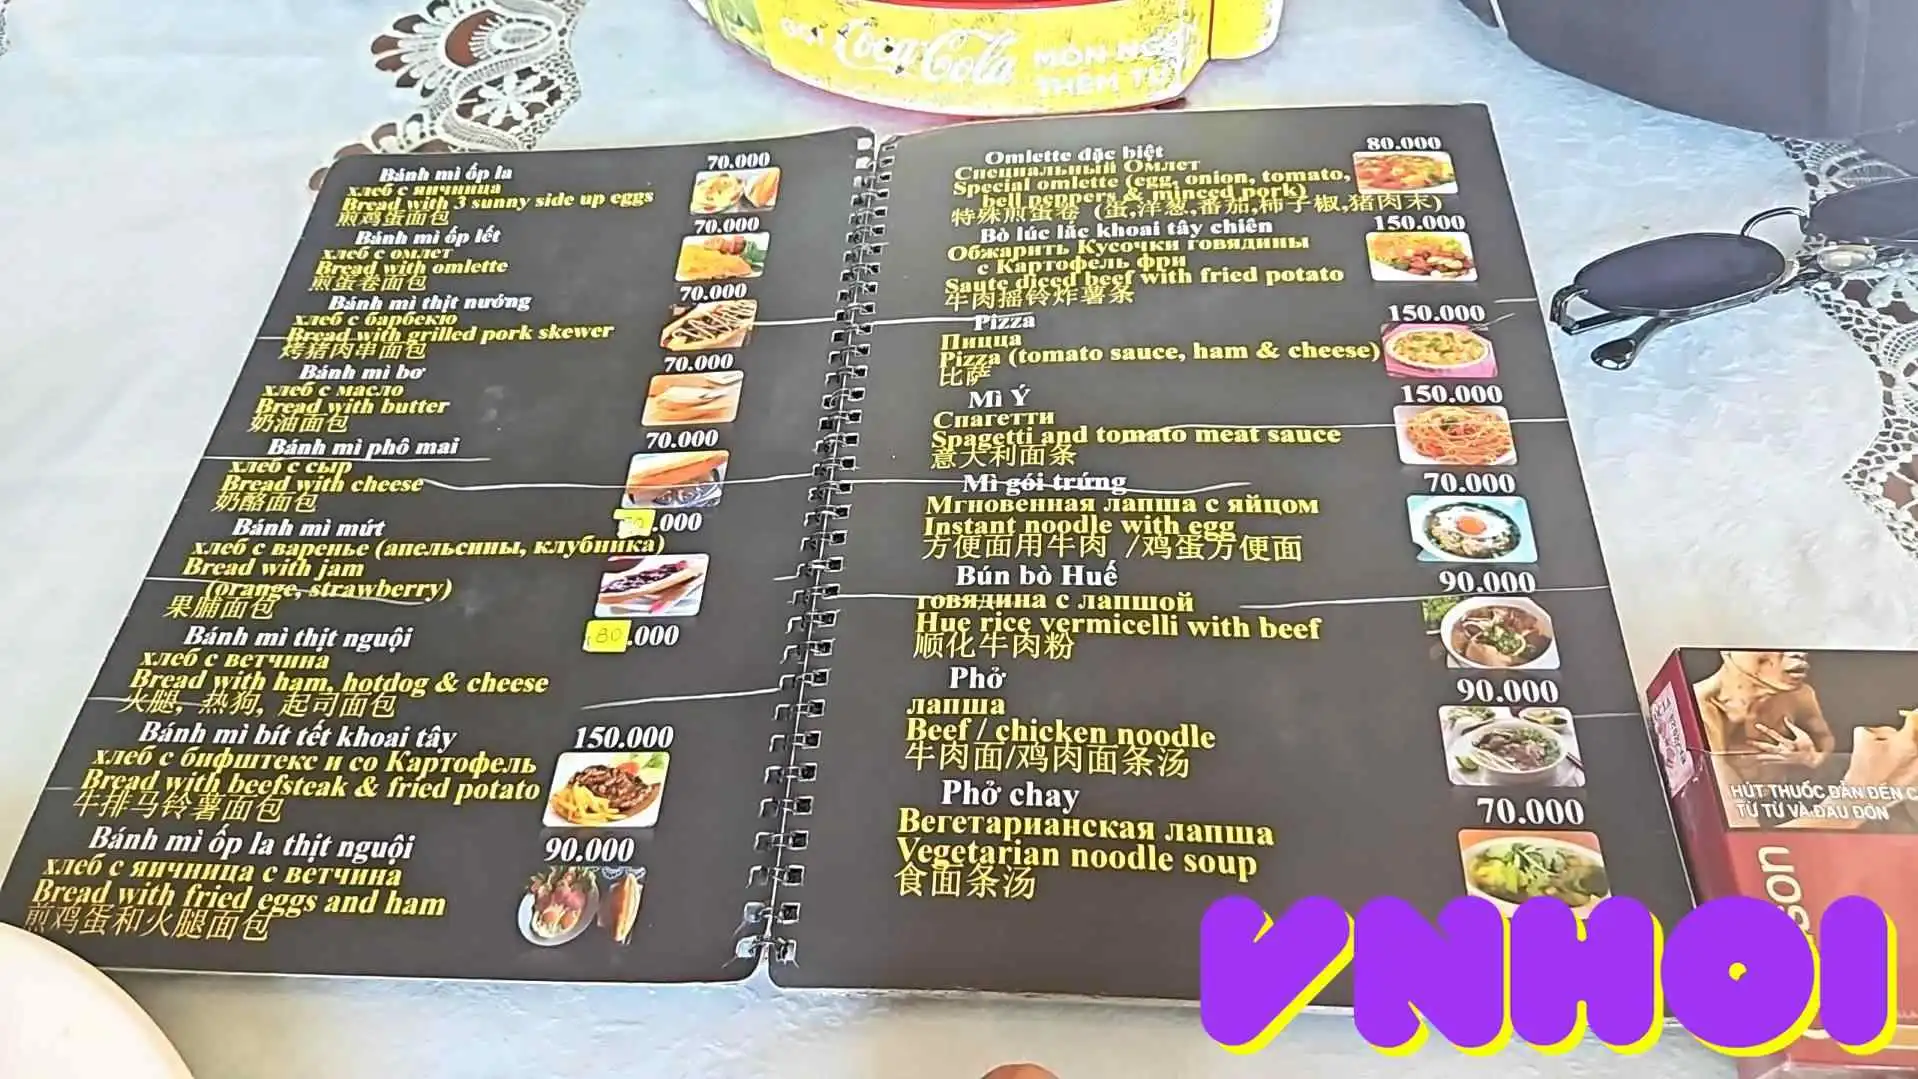 GỌI Coca-Cola MÓN NGON
THÊM
70.000
Bánh mì ốp la
хлеб с яичница
Bread with 3 sunny side up eggs
煎鸡蛋面包
70.000
Bánh mì ốp lết
хлеб с омлет
Bread with omlette
煎蛋卷面包
70.000
Bánh mì thịt nướng
хлеб с барбекю
Bread with grilled pork skewer
烤猪肉串面包
70.000
Bánh mì bơ
хлеб с масло
Bread with butter
奶油面包
70.000
Bánh mì phô mai
хлеб с сыр
Bread with cheese
奶酪面包
.000
Bánh mì mứt
хлеб с варенье (апельсины, клубника)
Bread with jam
(orange, strawberry)
果脯面包
80.000
Bánh mì thịt nguội
хлеб с ветчина
Bread with ham, hotdog & cheese
火腿, 热狗, 起司面包
150.000
Bánh mì bít tết khoai tây
хлеб с бифштекс и со Картофель
Bread with beefsteak & fried potato
牛排马铃薯面包
90.000
Bánh mì ốp la thịt nguội
хлеб с яичница с ветчина
Bread with fried eggs and ham
煎鸡蛋和火腿面包
80.000
Omlette đặc biệt
Специальный Омлет
Special omlette (egg, onion, tomato,
bell peppers & minced pork)
特殊煎蛋卷 (蛋,洋葱,番茄,柿子椒,猪肉末)
150.000
Bò lúc lắc khoai tây chiên
Обжарить Кусочки говядины
с Картофель фри
Saute diced beef with fried potato
牛肉摇铃炸薯条
150.000
Pizza
Пицца
Pizza (tomato sauce, ham & cheese)
比萨
150.000
Mì Ý
Спагетти
Spagetti and tomato meat sauce
意大利面条
70.000
Mì gói trứng
Мгновенная лапша с яйцом
Instant noodle with egg
方便面用牛肉 /鸡蛋方便面
90.000
Bún bò Huế
говядина с лапшой
Hue rice vermicelli with beef
顺化牛肉粉
90.000
Phở
лапша
Beef / chicken noodle
牛肉面/鸡肉面条汤
70.000
Phở chay
Вегетарианская лапша
Vegetarian noodle soup
食面条汤
HÚT THUỐC DẪN ĐẾN
TỪ TỪ VÀ ĐAU ĐỚN
son
VNHOI